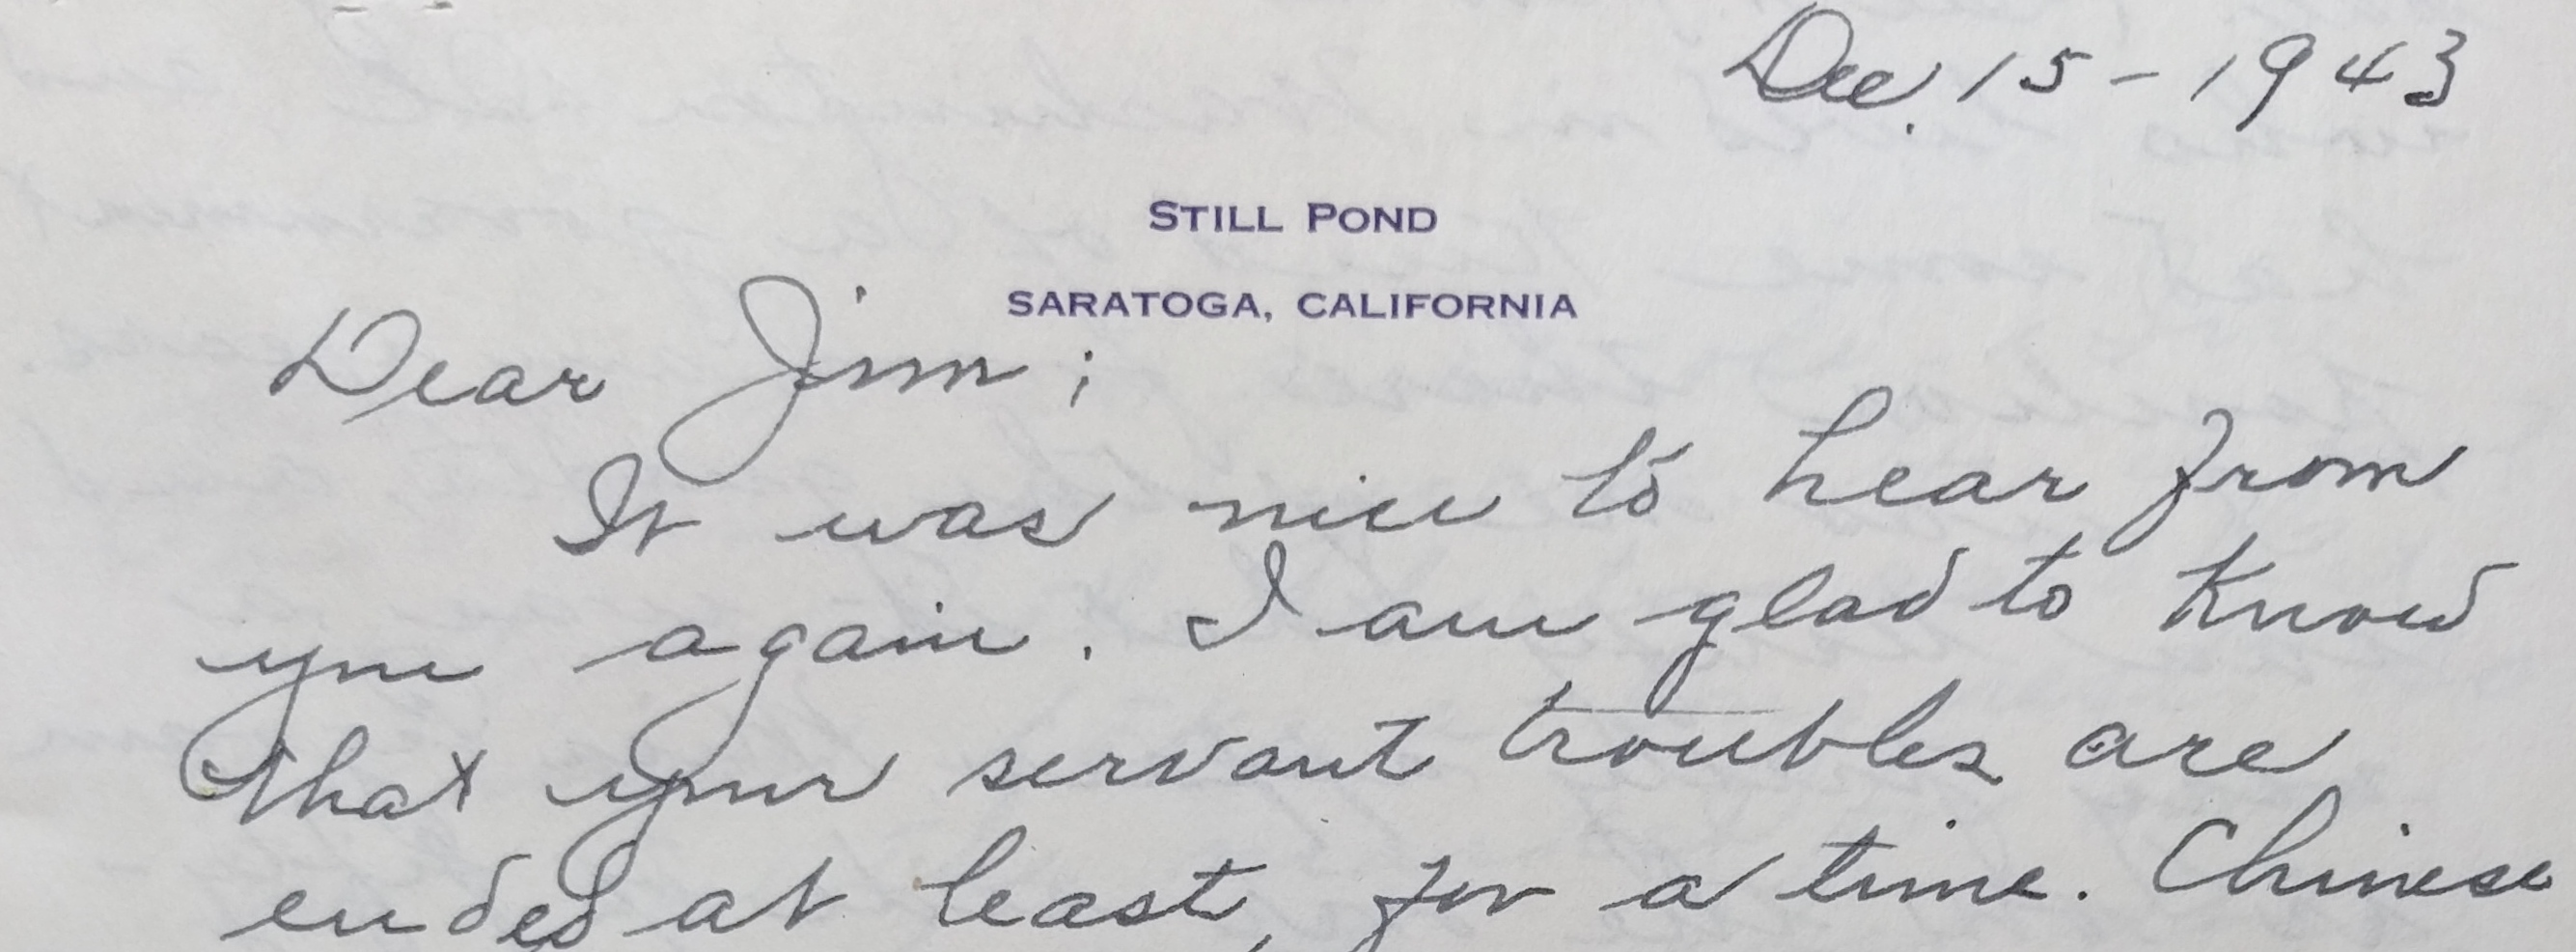 Dec. 15 - 1943
STILL POND
SARATOGA, CALIFORNIA
Dear Jim;
It was nice to hear from
you again. I am glad to know
that your servant troubles are
ended at least, for a time. Chinese